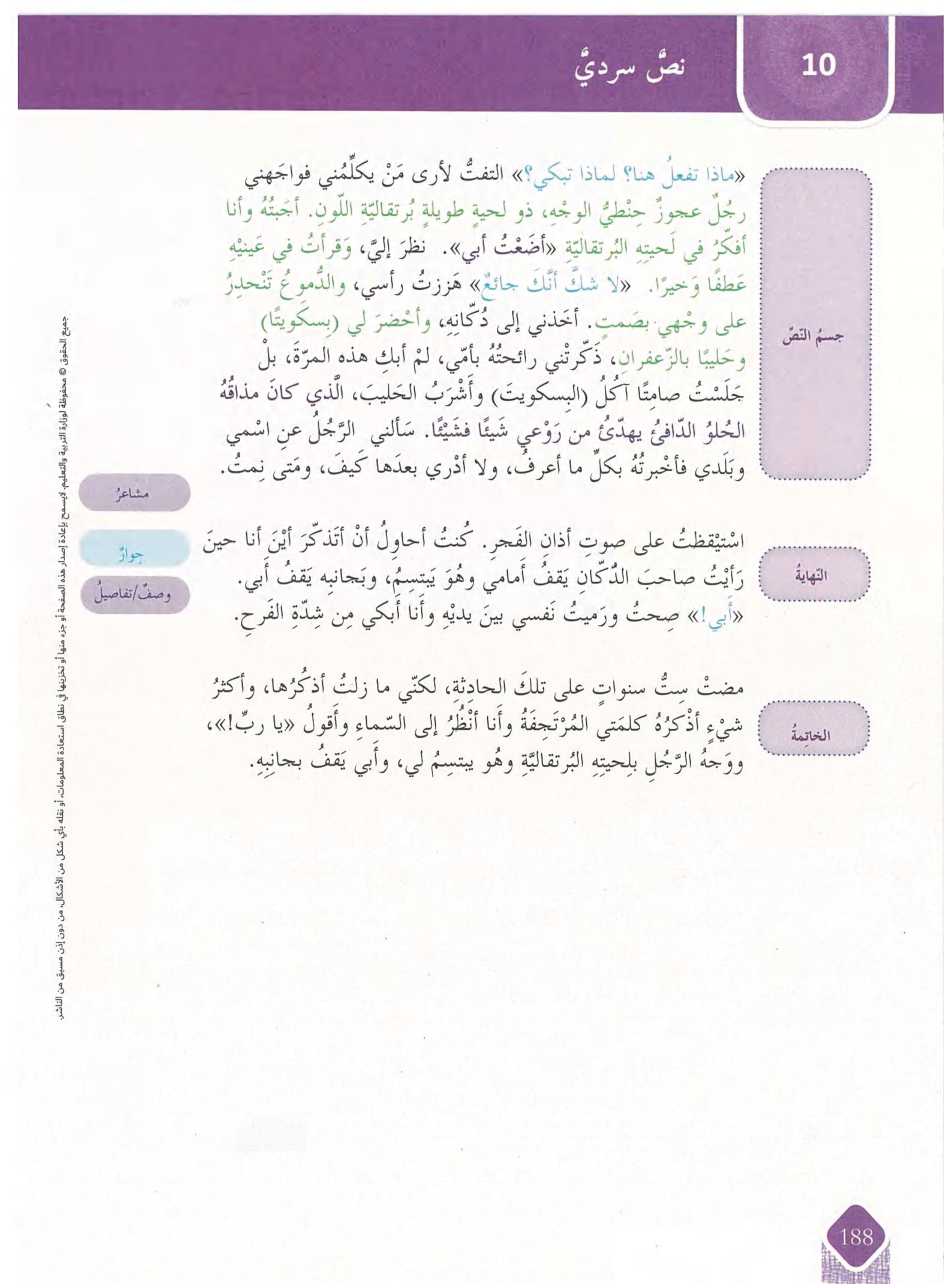 10
نصٌّ سرديٌّ
جسمُ النّصّ
«ماذا تفعلُ هنا؟ لماذا تبكي؟» التفتُّ لأرى مَنْ يكلِّمُني فواجَهني
رجُلٌ عجوزٌ حِنْطيُّ الوجْهِ، ذو لحيةٍ طويلةٍ بُرتقاليّةِ اللّونِ. أجَبتُهُ وأنا
أفكّرُ في لَحيتِهِ البُرتقاليّةِ «أضَعْتُ أبي». نظرَ إليَّ، وَقرأتُ في عَينيْهِ
عَطفًا وَخيرًا. «لا شكَّ أنَّكَ جائعٌ» هَززتُ رأسي، والدُّموعُ تَنْحدِرُ
على وجْهي بصَمتٍ. أخَذني إلى دُكّانِهِ، وأحْضرَ لي (بِسكَويتًا)
وحَليبًا بالزّعفرانِ، ذَكّرتْني رائحتُهُ بأمّي، لمْ أبكِ هذه المرّةَ، بلْ
جَلَسْتُ صامِتًا آكُلُ (البِسكويتَ) وأَشْرَبُ الحَليبَ، الَّذي كانَ مذاقُهُ
الحُلوُ الدّافئُ يهدّئُ من رَوْعي شَيئًا فشَيْئًا. سَألني الرَّجُلُ عنِ اسْمي
وبَلَدي فأخْبرتُهُ بكلِّ ما أعرفُ، ولا أدْري بعدَها كَيفَ، ومَتى نِمتُ.
مشاعرُ
حِوارٌ
وصفٌ/تفاصيلُ
النّهايةُ
اسْتيْقظتُ على صوتِ أذانِ الفَجرِ. كُنتُ أحاوِلُ أنْ أتَذكّرَ أيْنَ أنا حينَ
رَأيْتُ صاحبَ الدّكّانِ يَقفُ أمامي وهُوَ يَبتسِمُ، وبَجانبِه يَقفُ أبي.
«أبي!» صِحتُ ورَميتُ نَفسي بينَ يديْهِ وأنا أبكي مِن شِدّةِ الفَرحِ.
الخاتِمةُ
مضتْ سِتُّ سنواتٍ على تلكَ الحادِثةِ، لكنّي ما زلتُ أذكُرُها، وأكثرُ
شيْءٍ أذْكرُهُ كلمَتي المُرْتَجِفَةُ وأنا أنْظُرُ إلى السّماءِ وأقولُ «يا ربِّ!»،
ووَجهُ الرَّجُلِ بلِحيتِهِ البُرتقاليَّةِ وهُو يبتسِمُ لي، وأبي يَقفُ بجانِبِهِ.
جميع الحقوق © محفوظة لوزارة التربية والتعليم. لايسمح بإعادة إصدار هذه الصفحة أو جزء منها أو تخزينها في نطاق استعادة المعلومات، أو نقله بأي شكل من الأشكال، من دون إذن مسبق من الناشر.
188